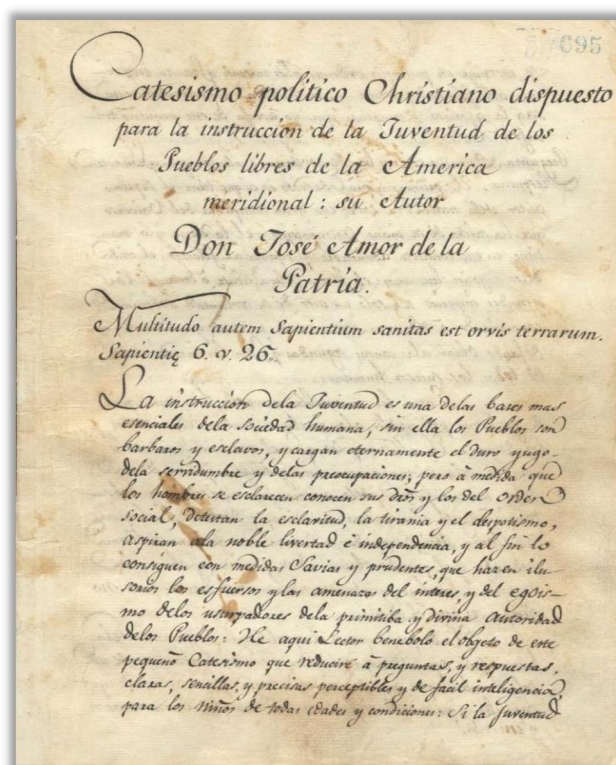 695
Catesismo politico Christiano dispuesto
para la instruccion de la Juventud de los
Pueblos libres de la America
meridional: su Autor
Don José Amor de la
Patria.
Multitudo autem Sapientium sanitas est orvis terrarum.
Sapientię 6. v. 26.
La instruccion dela Juventud es una delas bases mas
esenciales dela sociedad humana, sin ella los Pueblos son
barbaros y esclavos, y cargan eternamente el duro yugo
dela servidumbre y delas preocupaciones; pero à medida que
los hombres se esclarecen conocen sus dros y los del orden
social, detestan la esclavitud, la tirania y el despotismo,
aspiran ala noble livertad é independencia, y al fin lo
consiguen con medidas Savias y prudentes, que hazen ilu-
sorios los esfuersos y las amenazas del interes, y del egois-
mo delos usurpadores dela primitiba y divina autoridad
delos Pueblos: He aqui Lector benebolo el objeto de este
pequeño Catesismo que reduciré à preguntas, y respuestas,
claras, sencillas, y precisas perceptibles y de facil inteligencia
para los niños de todas edades y condiciones: Si la Juventud